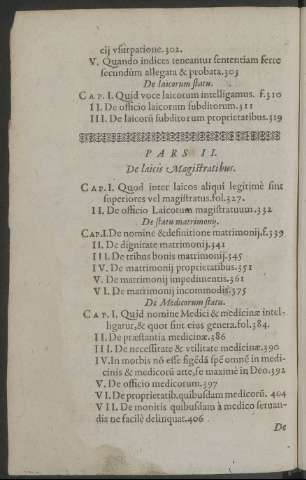 cij vsurpatione.302.
V. Quando iudices teneantur sententiam ferre
secundùm allegata & probata.303
De laicorum statu.
CAP. I. Quid voce laicorum intelligamus. f.310
II. De officio laicorum subditorum.311
III. De laicorũ subditorum proprietatibus.319
PARS II.
De laicis Magistratibus.
CAP. I. Quod inter laicos aliqui legitimè sint
superiores vel magistratus.fol.327.
II. De officio Laicorum magistratuum.332
De statu matrimonij.
CAP.I.De nomine &definitione matrimonij.f.339
II. De dignitate matrimonij.341
III. De tribus bonis matrimonij.345
IV. De matrimonij proprietatibus.351
V. De matrimonij impedimentis.361
VI. De matrimonij incommodis.375
De Medicorum statu.
CAP. I. Quid nomine Medici & medicinæ intel-
ligatur,& quot sint eius genera.fol.384.
II. De præstantia medicinæ.386
III. De necessitate & vtilitate medicinæ.390
IV. In morbis nõ esse figẽdã spẽ omnẽ in medi-
cinis & medicorũ arte,sed maximè in Deo.392
V. De officio medicorum.397
VI. De proprietatib.quibusdam medicorũ. 404
VII. De monitis quibusdam à medico seruan-
dis ne facilè delinquat.406
De